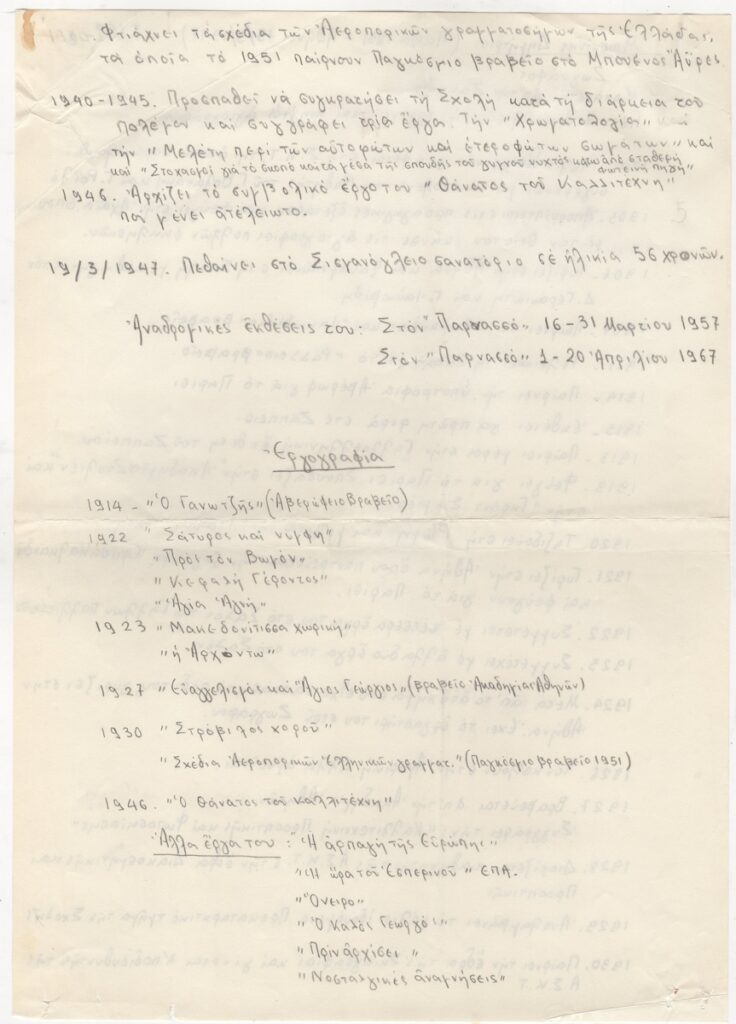 . Φτιάχνει τά σχέδια τῶν Ἀεροπορικῶν γραμματοσήμων τῆς Ἑλλάδας,
τα ὁποῖα τό 1951 παίρνουν Παγκόσμιο βραβεῖο στό Μπουένος Ἄϋρες.
1940-1945. Προσπαθεῖ νά συγκρατήσει τή Σχολή κατά τή διάρκεια τοῦ
πολέμου καί συγγράφει τρία ἔργα. Την "Χρωματολογία"
τήν "Μελέτη περί τῶν αὐτοφώτων καί ἑτεροφώτων σωμάτων" και
καί "Στοχασμοί γιά τό σκοπό και τα μέσα τῆς σπουδῆς τοῦ γυμνοῦ νυκτός κατω ἀπό σταθερή
φωτεινη πηγη"
1946. Ἀρχίζει τό συμβολικό ἔργο του "Θάνατος τοῦ Καλλιτέχνη"
πού μένει ἀτέλειωτο.
19/3/1947. Πεθαίνει στό Σισμανόγλειο σανατόριο σέ ἡλικία 56 χρονῶν.
Ἀναδρομικές ἐκθέσεις του: Στόν "Παρνασσό" 16-31 Μαρτίου 1957
Στόν "Παρνασσό" 1-20 Ἀπριλίου 1967
Ἐργογραφία
1914 - "Ὁ Γανωτζῆς" (Ἀβερώφειο Βραβεῖο)
1922 " Σάτυρος καί νύμφη"
"Πρός τόν Βωμόν"
"Κεφαλή Γέροντος"
"Ἁγία Ἁγνή"
1923 "Μακεδονίτισσα χωρική"
"ἡ Ἀρχόντω"
1927 "Εὐαγγελισμός καί Ἅγιος Γεώργιος" (βραβεῖο Ἀκαδημίας Ἀθηνῶν)
1930 "Στρόβιλος χοροῦ"
"Σχέδια Ἀεροπορικῶν Ἑλληνικῶν γραμματ." (Παγκόσμιο βραβεῖο 1951)
1946. "Ὁ Θάνατος τοῦ Καλλιτέχνη"
Ἄλλα ἔργα του : "Ἡ ἁρπαγή τῆς Εὐρώπης"
"Ἡ ὥρα τοῦ Ἑσπερινοῦ" ΕΠΑ.
"Ὄνειρο"
"Ὁ Καλός Γεωργός"
"Πρίν ἀρχίσει "
"Νοσταλγικές ἀναμνήσεις"